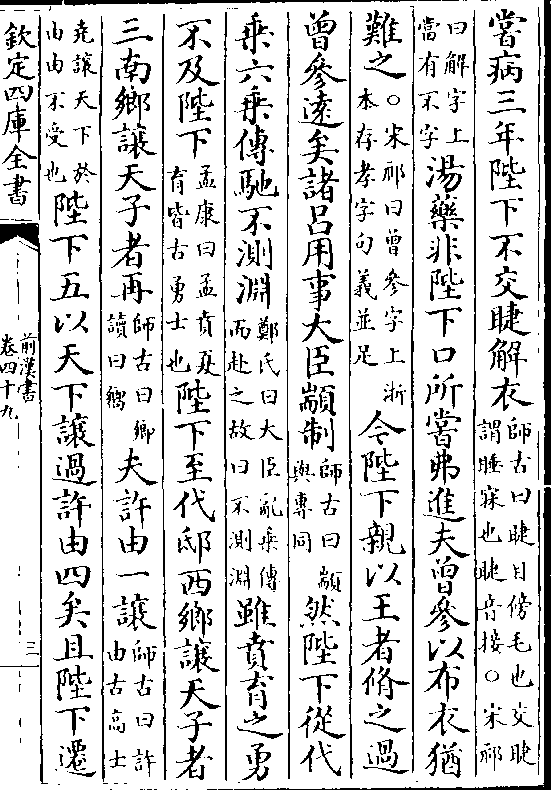 嘗病三年陛下不交睫解衣師古曰睫目傍毛也交睫謂睡寐也睫音接○宋祁
曰解字上當有不字湯藥非陛下口所嘗弗進夫曾參以布衣猶
難之○宋祁曰曾參字上浙本存孝字句義並足今陛下親以王者脩之過
曾參遠矣諸呂用事大臣顓制師古曰顓與專同然陛下從代
乗六乗傳馳不測淵鄭氏曰大臣亂乗傳而赴之故曰不測淵雖賁育之勇
不及陛下孟康曰孟賁夏育皆古勇士也陛下至代邸西鄉讓天子者
三南鄉讓天子者再師古曰鄉讀曰嚮夫許由一讓師古曰許由古高士
堯讓天下於由由不受也陛下五以天下讓過許由四矣且陛下遷
欽定四庫全書
前漢書
卷四十九
三